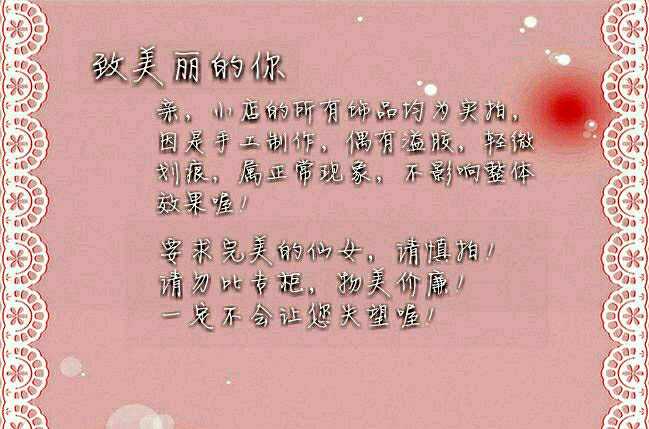 致美丽的你
亲，小店的所有饰品均为实拍，
因是手工制作，偶有溢胶，轻微
划痕，属正常现象，不影响整体
效果喔！
要求完美的仙女，请慎拍！
请勿比专柜，物美价廉！
一定不会让您失望喔！